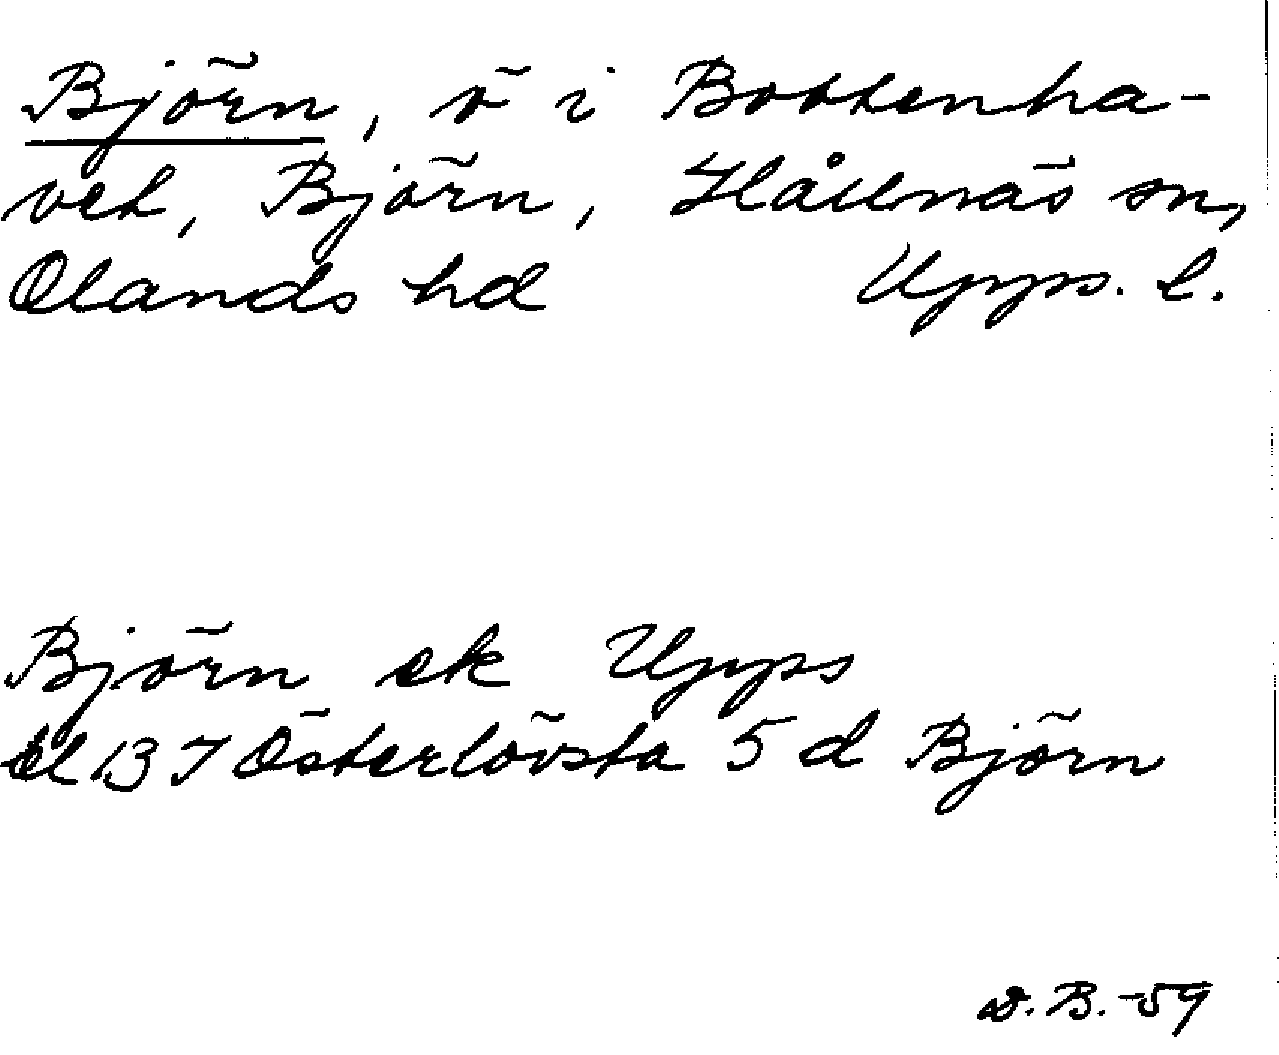 Björn, ö i Bottenha-
vet, Björn, Hållnäs sn,
Olands hd Upps. l.
Björn ek Upps
bl 13 I Österlövsta 5 d Björn
D.B.-59